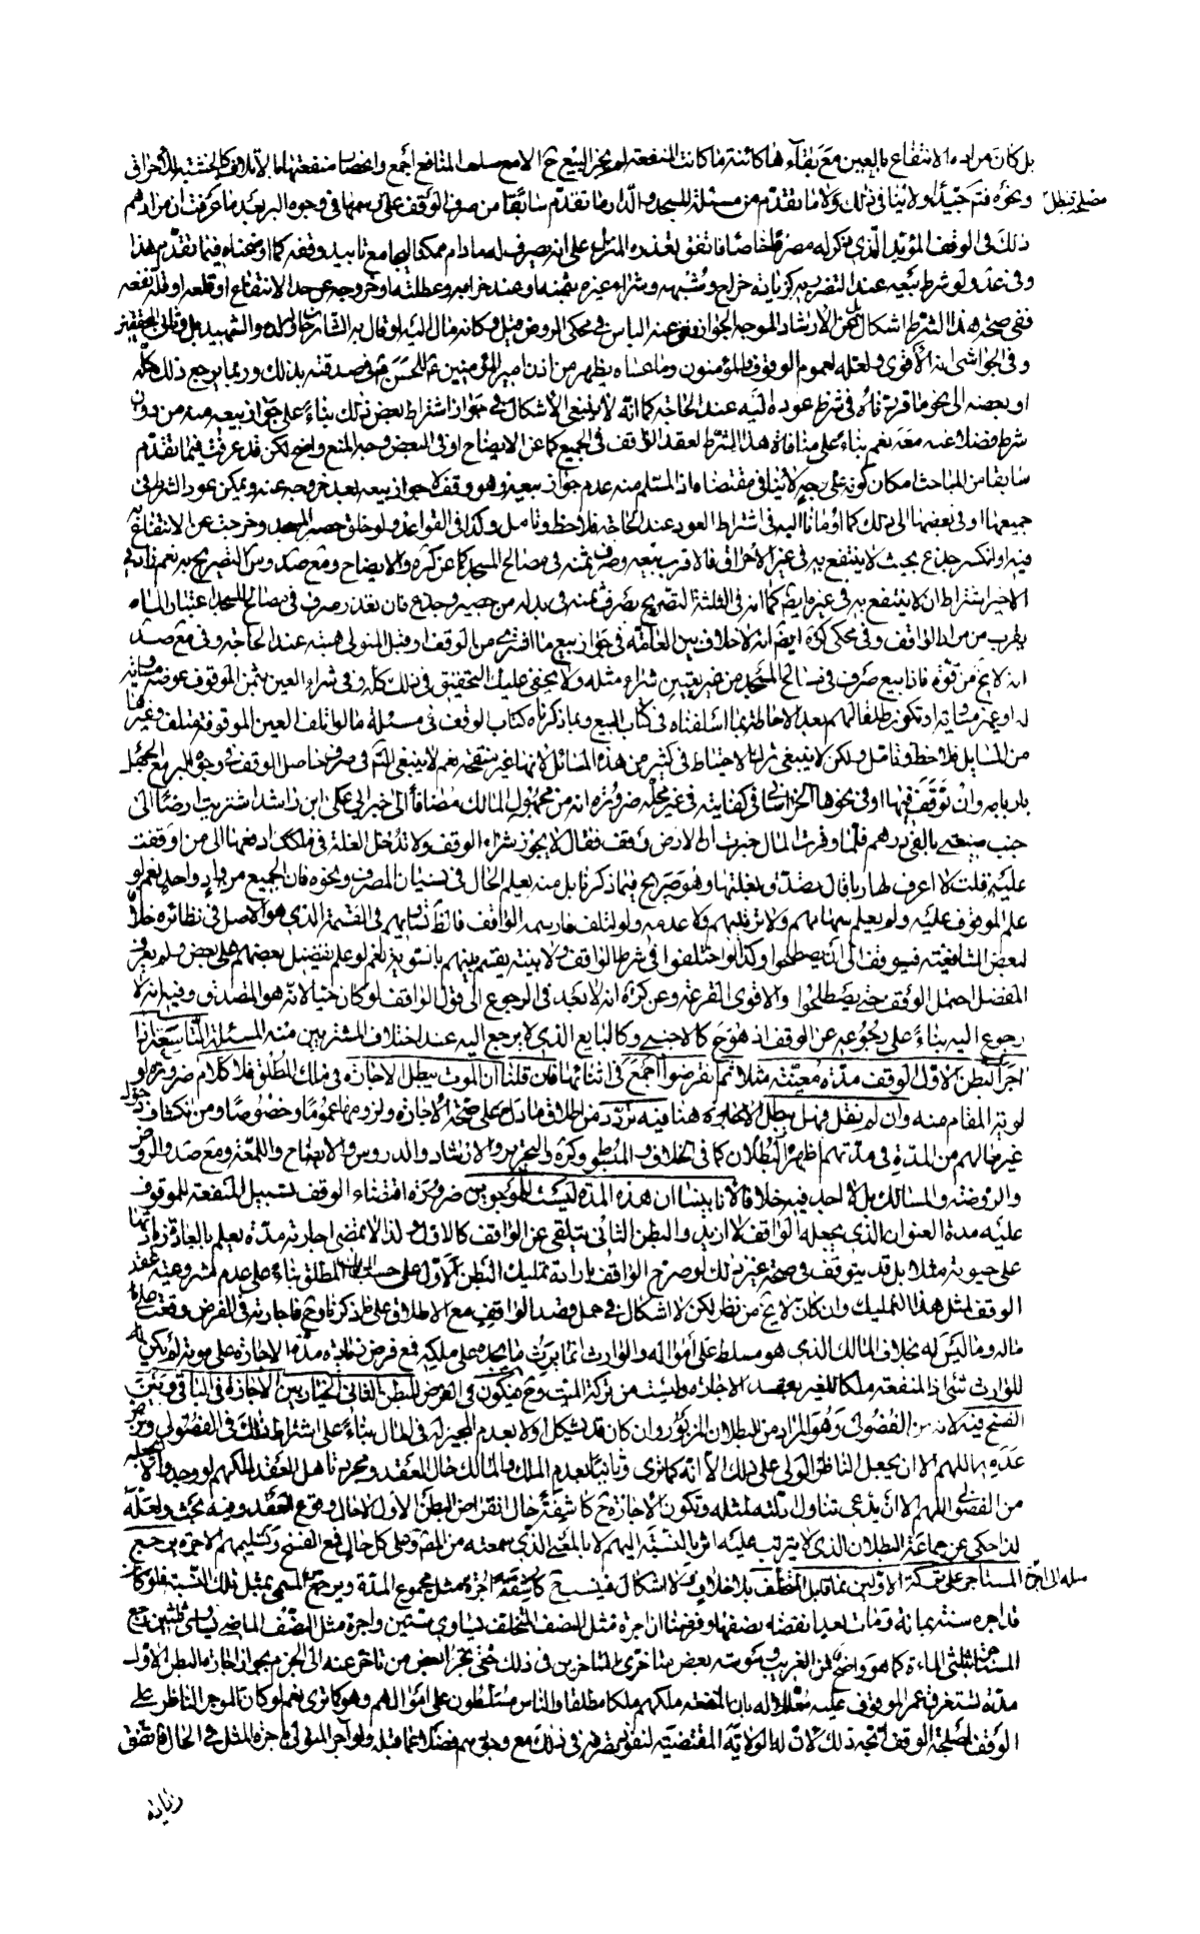 بل كان مراده الانتفاع بالعين مع بقاءها كائنة ما كانت المنفعة لم يجز البيع ح الا مع سلب المنافع اجمع وانحصار منفعتها بالاتلاف كالخشبة للاحراق
ونحوه فتم جيدا ولا ينافى ذلك ولا ما تقدم من مسئلة المسجد والدار ما تقدم سابقا من صرف الوقف على سهمها فى وجوه البر بعد ما عرفت ان مرادهم
ذلك فى الوقف المؤبد الذى ذكر له مصرفا خاصا فاتفق تعذره المنزل على انه يصرف له ما دام ممكنا ليجامع تابيد وقفه كما اوضحناه فيما تقدم هذا
وفى عد ولو شرط بيعه عند التضرر به كزيادة خراج وشبهه وشراء غيره بثمنه او عند خرابه وعطلته او خروجه عن حد الانتفاع او قلة نفعه
ففى صحة هذا الشرط اشكال عن الارشاد الموجه الجواز
وفى الحواشى انه الاقوى ولعله لعموم الوقوف والمؤمنون وما عساه يظهر من اذن امير المؤمنين للحسن فى صدقته بذلك وربما يرجع ذلك كله
او بعضه الى نحو ما قررناه فى شرط عوده اليه عند الحاجة كما انه لا ينبغى الاشكال فى جواز اشتراط بعض ذلك بناء على جواز بيعه منه من دون
شرط فضلا عنه معه نعم بناء على منافاة هذا الشرط لعقد الوقف فى الجميع كما عن الايضاح او فى البعض وجه المنع واضح لكن قد عرفت فيما تقدم
سابقا من المباحث امكان كونه على وجه لا ينافى مقتضاه اذ المسلم منه عدم جواز بيعه وهو وقف لا جواز بيعه بعد خروجه عنه ويمكن عود الشرط فى
جميعها او فى بعضها الى ذلك كما اومانا اليه فى اشتراط العود عند الحاجة فلاحظ وتامل وكذا فى القواعد ولو خلق حصير المسجد وخرجت عن الانتفاع به
فيه او انكسر جذع بحيث لا ينتفع به فى غير الاحراق فالاقرب بيعه وصرف ثمنه فى مصالح المسجد كما عن كره والايضاح ومع صد وس التصريح به نعم زاد فى
الاخير اشتراط ان لا ينتفع به فى غيره ايضا كما انه فى الثلثة التصريح بصرف ثمنه فى بدله من حصير وجذع فان تعذر صرف فى مصالح المسجد
يقرب من مراد الواقف وفى محكى كره ايضا انه لا خلاف بين العامة فى جواز بيع ما اشترى من الوقف او قبل المتولى هبته عند الحاجة وفى مع صد
انه لا يخ من قوة فاذا بيع صرف فى مصالح المسجد من غير تعيين شراء مثله ولا يخفى عليك التحقيق فى ذلك كله وفى شراء العين بثمن الموقوف عوضه
له او غير مساوية او تكون طلقا لهم بعد الاحاطة بما اسلفناه فى كتاب البيع وبما ذكرناه كتاب الوقف فى مسئلة ما لو اتلف العين الموقوفة متلف وغيرها
من المسايل فلاحظ وتامل ولكن لا ينبغى ترك الاحتياط فى كثير من هذه المسائل لانها غير منقحة نعم لا ينبغى التم فى صرف حاصل الوقف فى وجوه البر مع الجهل
باربابه وان توقف فيها او فى نحوها الخراسانى فى كفايته فى غير محله ضرورة انه من مجهول المالك مضافا الى خبر ابى على ابن راشد اشتريت ارضا الى
جنب ضيعتى بالفى درهم فلما وفرت المال خبرت ان الارض وقف فقال لا يجوز شراء الوقف ولا تدخل الغلة فى ملكك ادفعها الى من اوقفت
عليه قلت لا اعرف لها ربا قال تصدق بغلتها وهو صريح فيما ذكرنا بل منه يعلم الحال فى نسيان المصرف ونحوه فان الجميع من واد واحد نعم لو
علم الموقوف عليه ولم يعلم سهامهم ولا ترتيبهم ولا عدمه ولو لتلف ما رسمه الواقف فالظ تساويهم فى القسمة الذى هو الاصل فى نظائره خلافا
لبعض الشافعية فيوقف الى ان يصطلحوا وكذا لو اختلفوا فى شرط الواقف ولا بينة يقسم بينهم بالتسوية نعم لو علم تفضيل بعضهم على بعض ولم يعرف
المفضل احتمل الوقف حتى يصطلحوا والاقوى القرعة وعن كره انه لا بعد فى الرجوع الى قول الواقف لو كان حيا لانه هو المصدق وفيه انه لا
رجوع اليه بناء على رجوعه عن الوقف اذ هو ح كالاجنبى وكالبايع الذى لا يرجع اليه عند اختلاف المشتريين منه المسئلة التاسعة اذا
اجر البطن الاول الوقف مدة معينة مثلا ثم انقرضوا اجمع فى اثنائها فان قلنا ان الموت يبطل الاجارة فى ملك المطلق فلا كلام ضرورة
لوية المقام منه وان لم نقل فهل يبطل الاجارة هنا فيه تردد من اطلاق ما دل على صحة الاجارة ولزومها عموما وخصوصا ومن انكشاف
غير مالهم من المدة فى مدتهم اظهره البطلان كما فى الخلاف والمبسوط وكره والتحرير والارشاد والدروس والايضاح واللمعة ومع صد والروض
والروضة والمسالك بل لا احد فيه خلافا لانا بينا ان هذه المدة ليست للموجودين ضرورة اقتضاء الوقف تسبيل المنفعة للموقوف
عليه مدة العنوان الذى يجعله الواقف لا ازيد والبطن الثانى يتلقى عن الواقف كالاول ولذا لا تمضى اجارته مدة يعلم بالعادة زيادتها
على حيوته مثلا بل قد يتوقف فى صحة غير ذلك لو صرح الواقف بارادة تمليك البطن الاول على حسب المطلق بناء على عدم مشروعية عقد
الوقف لمثل هذا التمليك وان كان لا يخ من نظر لكن لا اشكال فى حمل قصد الواقف مع الاطلاق على ما ذكرنا وح فاجارته فى الفرض وقعت
ماله وما ليس له بخلاف المالك الذى هو مسلط على امواله والوارث انما يرث ما يجده على ملكه فمع فرض زيادة مدة الاجارة على موته لم يكن
للوارث شىء اذ المنفعة ملكا للغير بعقد الاجارة وليست من تركة الميت وح فيكون فى الفرض للبطن الثانى الخيار بين الاجازة فى الباقى وبين
الفسخ فيه لانه من الفضولى وهو المراد من البطلان المزبور وان كان قد يشكل اولا بعدم المجيز له فى الحال بناء على اشتراط ذلك فى الفضولى
عدمه اللهم الا ان يجعل الناظر الولى على ذلك الا انه كما ترى وثانيا بعدم الملك والمالك حال العقد ومجرد تاهل العقد لملكهم لو وجدوا
من الفضولى اللهم الا ان يدعى تناول ادلته لمثله وتكون الاجازة ح كاشفة حال انقراض البطن الاول لا حال وقوع العقد وفيه بحث ولعله
لذا حكى عن جماعة البطلان الذى لا يترتب عليه اثر بالنسبة اليهم لا بالمعنى الذى سمعته من المص وعلى كل حال فمع الفسخ وتسليمهم الاجرة يرجع
المستاجر على تركة الاولين بما قابل المتخلف بلا خلاف ولا اشكال فينسب اجرة مثله الى اجرة مثل مجموع المدة ويرجع من المسمى بمثل تلك النسبة فلو كان
قد اجره سنة بمائة ومات بعد انقضاء نصفها وفرضنا ان اجرة مثل النصف المتخلف يساوى ستين واجرة مثل النصف الماضى يساوى ثلثين رجع
المستاجر بثلثى المائة كما هو واضح ومن الغريب وسوسة بعض متاخرى المتاخرين فى ذلك حتى تجرا بعض من تاخر عنه الى الجزم بجواز اجارة البطن الاول
مدة تستغرق عمر الموقوف عليه معللا له بان المنفعة ملكهم ملكا مطلقا والناس مسلطون على اموالهم وهو كما ترى نعم لو كان الموجر الناظر على
الوقف لمصلحة الوقف اتجه ذلك لان له الولاية المقتضية لنفوذ تصرفه فى ذلك مع وجودهم فضلا عما قبله ولو آجر المتولى باجرة المثل فى الحال فاتفق
زيادة